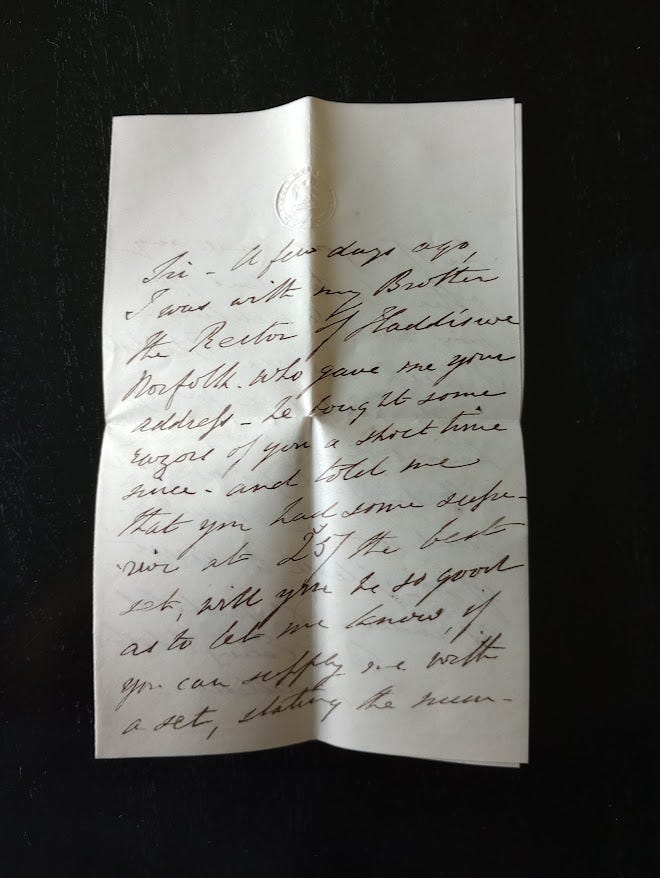 Sir - A few days ago,
I was with my Brother
the Rector of Haddiscoe
Norfolk. who gave me your
address - he bought some
razors of you a short time
since - and told me
that you had some supe-
rior at 25/ the best
set, will you be so good
as to let me know, if
you can supply me with
a set, stating the num-